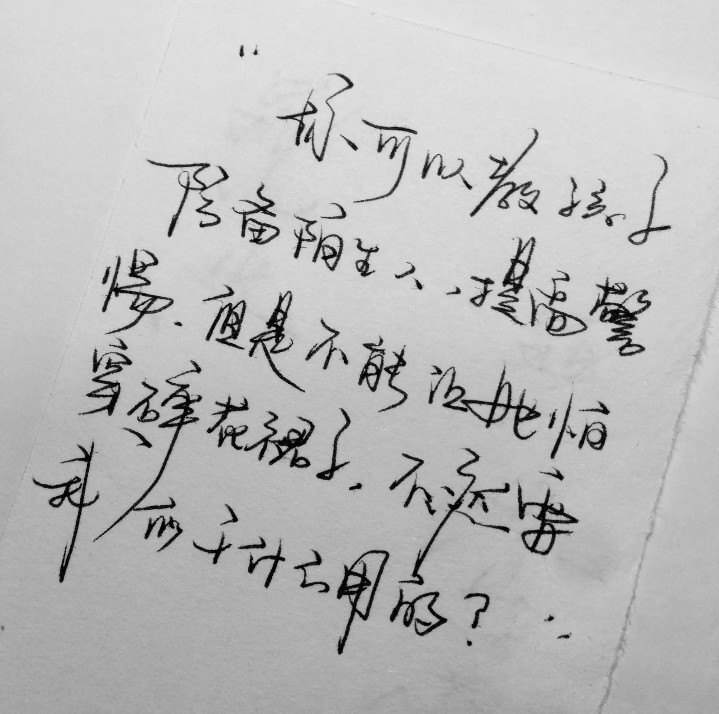 "你可以教孩子
防备陌生人,提高警
惕.但是不能让她怕
穿碎花裙子,不还要
我们干什么用的?"